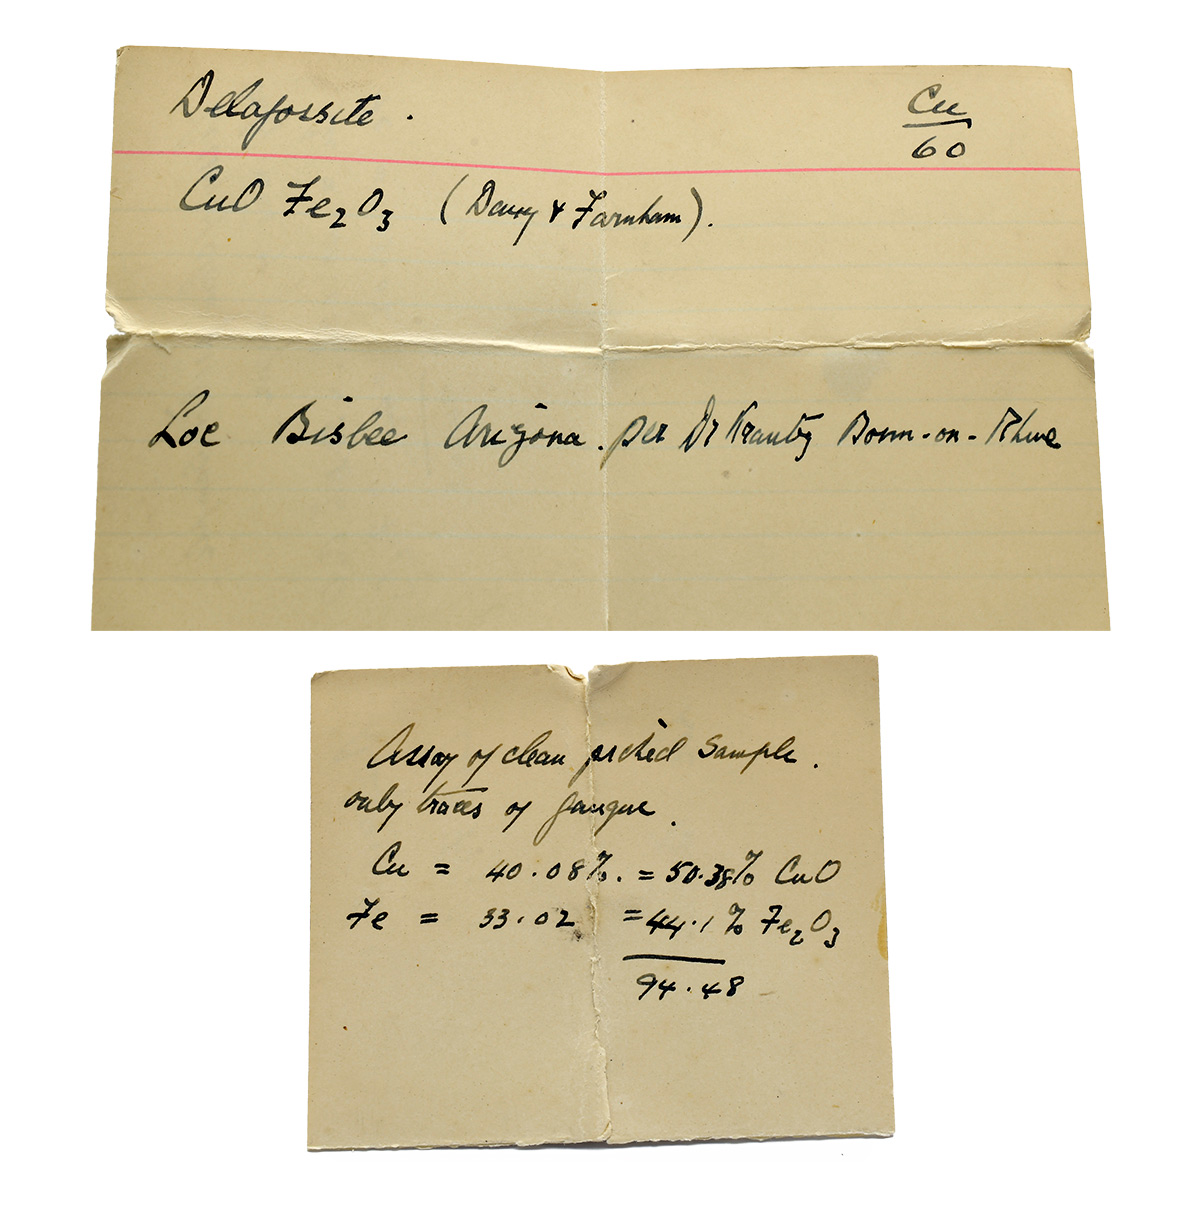 Delafossite.
Cu
60
CuO Fe₂O₃ (Davy & Farnham).
Loc Bisbee Arizona. per Dr Krantz Bonn-on-Rhine
Assay of clean picked sample.
only traces of gangue.
Cu = 40.08%. = 50.38% CuO
Fe = 33.02 = 44.1% Fe₂O₃
94.48